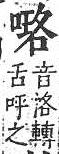 𠹗
音洛轉
舌呼之